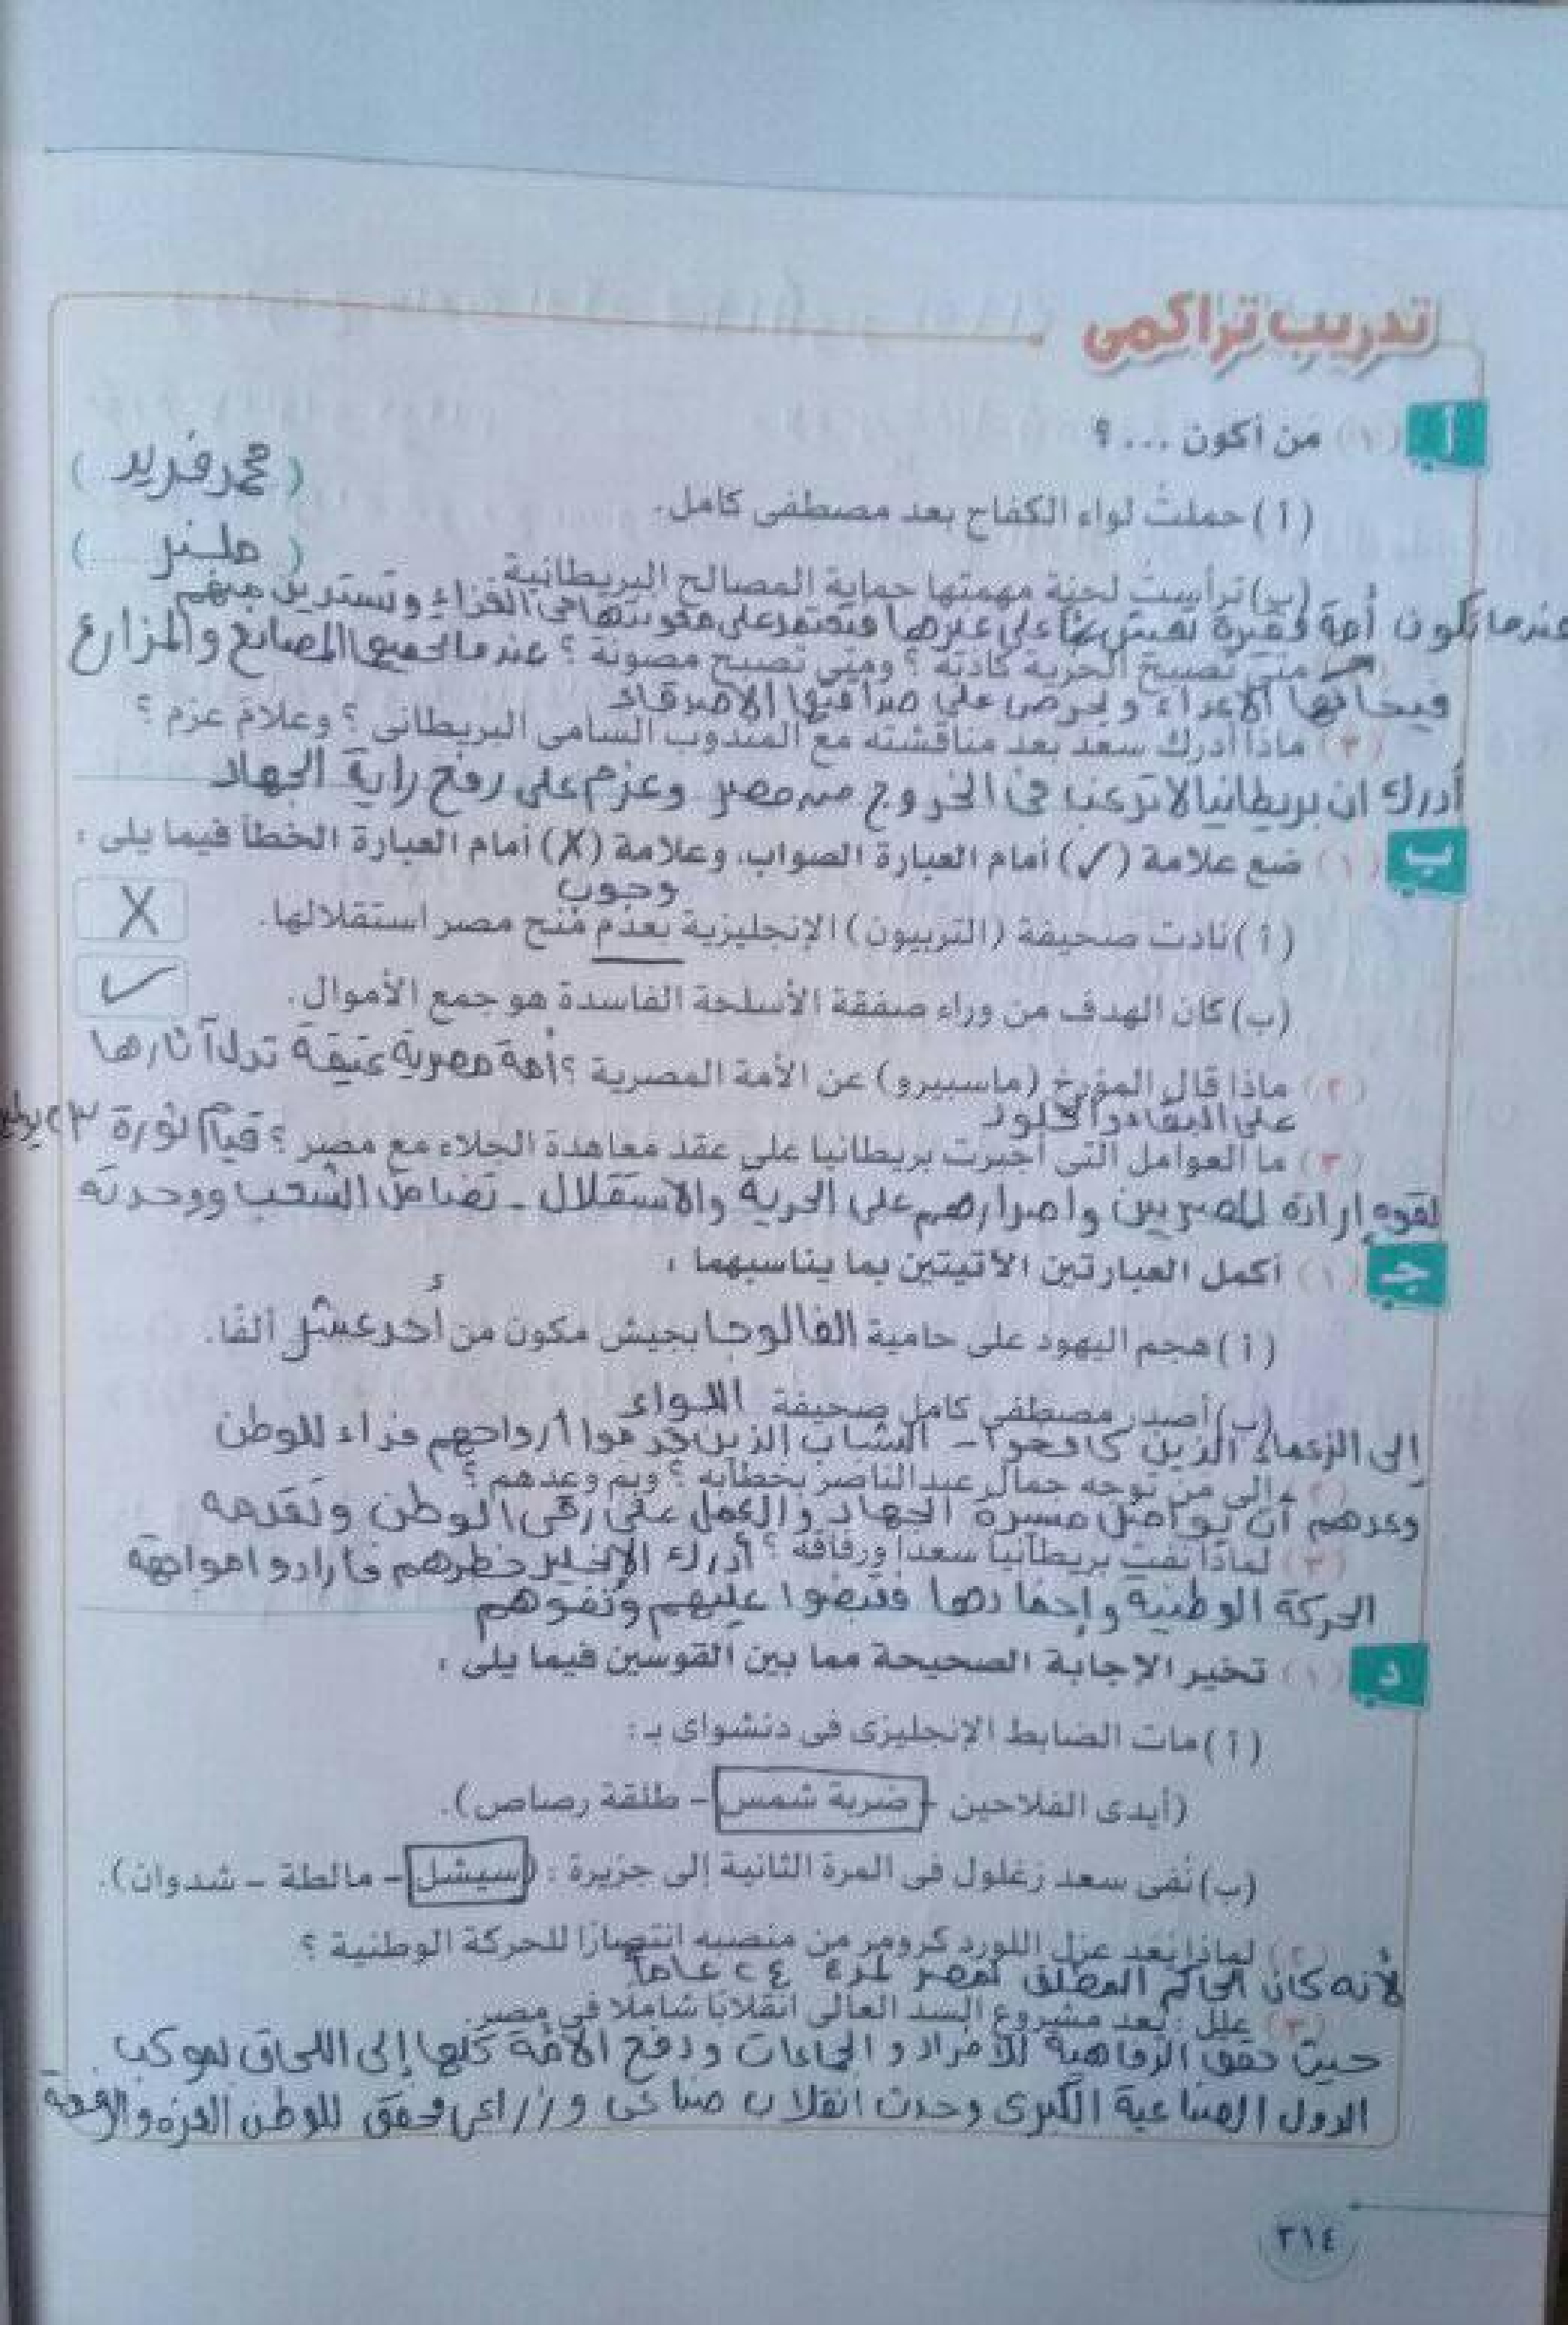 تدريب تراكمى
أ (١) من أكون ... ؟
(أ) حملتُ لواء الكفاح بعد مصطفى كامل. (محمد فريد)
(ب) ترأستُ لجنة مهمتها حماية المصالح البريطانية (ملنر)
عندما تكون أمة فقيرة تعيش على غيرها فتعتمد على معونتها فى الغذاء وتستدين منهم
متى تصبح الحرية كاذبة ؟ ومتى تصبح مصونة ؟ عندما تحميها المصانع والمزارع
فيخافها الأعداء ويحرص على صداقتها الأصدقاء
(٣) ماذا أدرك سعد بعد مناقشته مع المندوب السامى البريطانى ؟ وعلامَ عزم ؟
أدرك ان بريطانيا لا ترغب فى الخروج من مصر وعزم على رفع راية الجهاد
ب (١) ضع علامة (✓) أمام العبارة الصواب، وعلامة (X) أمام العبارة الخطأ فيما يلى :
وجوب
(أ) نادت صحيفة (التربيون) الإنجليزية بعدم مَنح مصر استقلالها. X
(ب) كان الهدف من وراء صفقة الأسلحة الفاسدة هو جمع الأموال. ✓
(٢) ماذا قال المؤرخ (ماسبيرو) عن الأمة المصرية ؟ أمة مصرية عتيقة تدل آثارها
على البقاء والخلود
(٣) ما العوامل التى أجبرت بريطانيا على عقد معاهدة الجلاء مع مصر ؟ قيام ثورة ٢٣ يوليو
لقوه إرادة المصريين واصرارهم على الحرية والاستقلال - تضامن الشعب ووحدته
جـ (١) أكمل العبارتين الآتيتين بما يناسبهما :
(أ) هجم اليهود على حامية الفالوجا بجيش مكون من أحد عشر ألفًا.
(ب) أصدر مصطفى كامل صحيفة اللواء
إلى الزعماء الذين كافحوا - الشباب الذين قدموا أرواحهم فداء للوطن
(٢) إلى مَن توجه جمال عبد الناصر بخطابه ؟ وبمَ وعدهم ؟
وعدهم أن يواصل مسيرة الجهاد والعمل على رقى الوطن وتقدمه
(٣) لماذا نفت بريطانيا سعدًا ورفاقه ؟ أدرك الإنجليز خطرهم فأرادوا مواجهة
الحركة الوطنية وإخمادها فقبضوا عليهم ونفوهم
د (١) تخير الإجابة الصحيحة مما بين القوسين فيما يلى :
(أ) مات الضابط الإنجليزى فى دنشواى بـ :
(أيدى الفلاحين - ضربة شمس - طلقة رصاص).
(ب) نُفى سعد زغلول فى المرة الثانية إلى جزيرة : (سيشل - مالطة - شدوان).
(٢) لماذا يُعد عزل اللورد كرومر من منصبه انتصارًا للحركة الوطنية ؟
لأنه كان الحاكم المطلق لمصر لمدة ٢٤ عاماً
(٣) علل : يُعد مشروع السد العالى انقلابًا شاملًا فى مصر.
حيث حقق الرفاهية للأفراد والجماعات ودفع الأمة كلها إلى اللحاق بموكب
الدول الصناعية الكبرى وحدث انقلاب صناعى وزراعى محقق للوطن العزة والرفعة
٣١٤